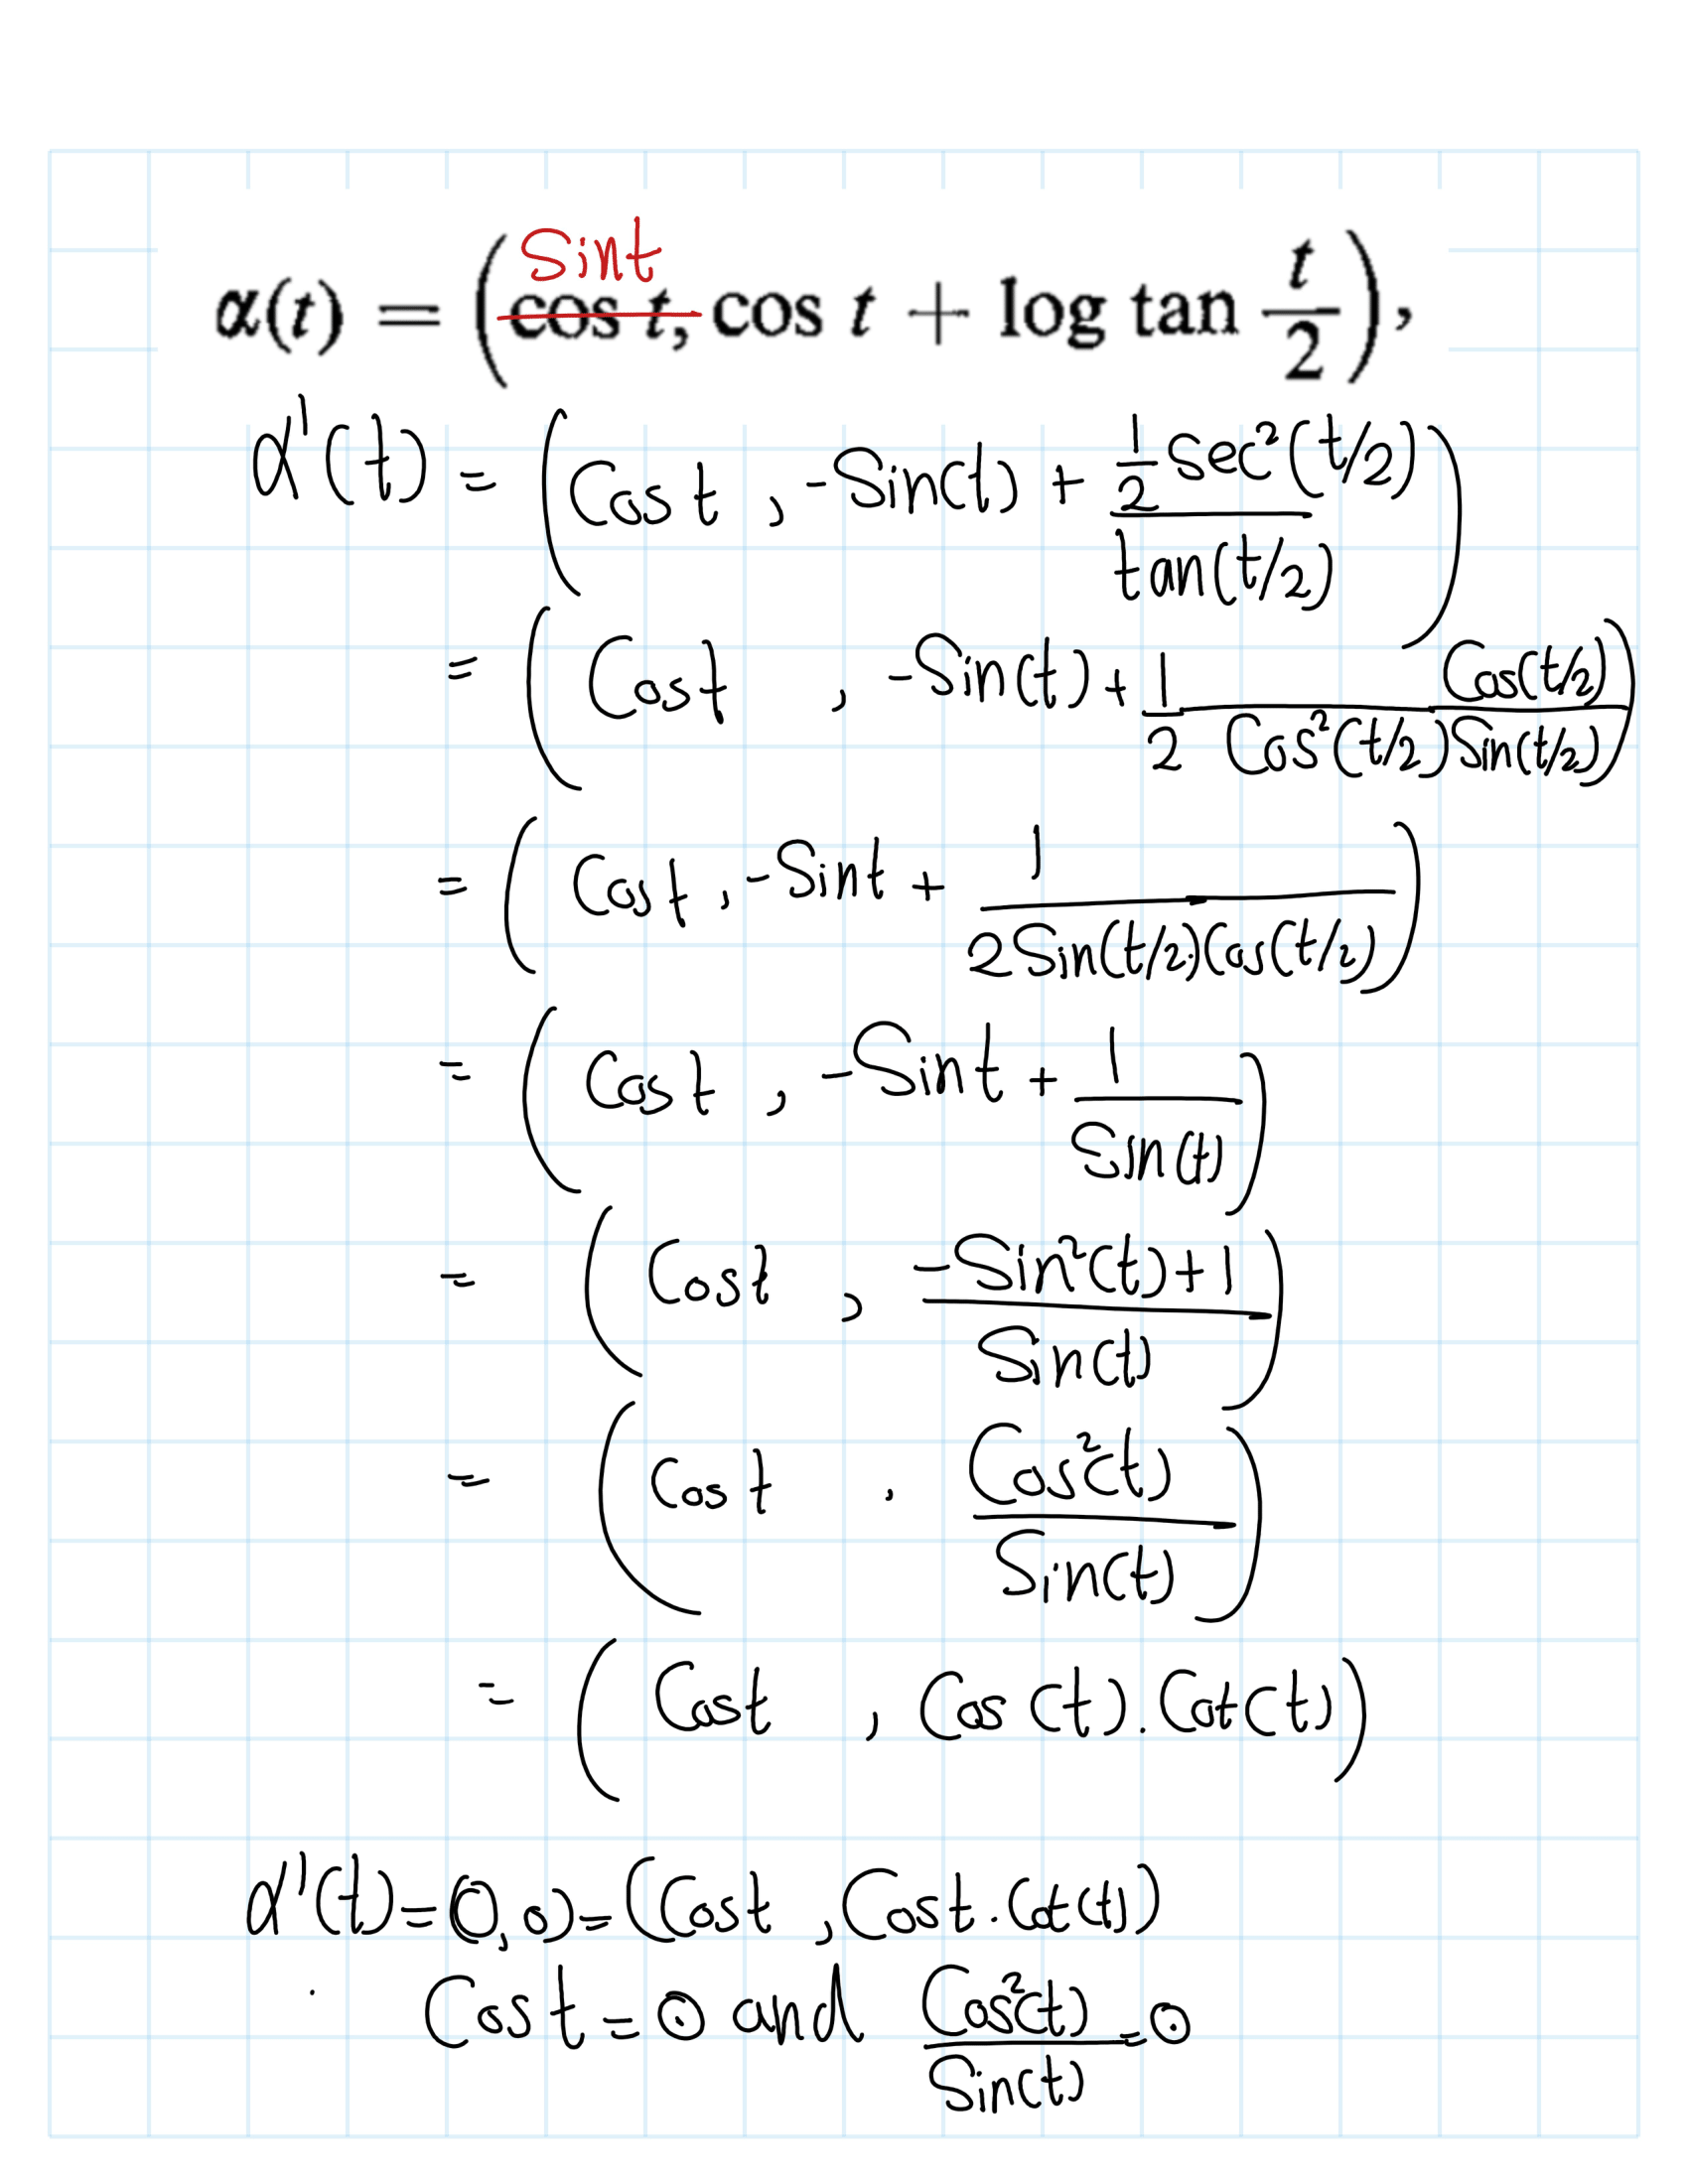 α(t) = (Sint ~~cos t,~~ cos t + log tan t/2),
α'(t) = (Cost , -Sin(t) + (1/2 Sec²(t/2))/(tan(t/2)))
= (Cost , -Sin(t) + 1/2 1/(Cos²(t/2)) Cos(t/2)/Sin(t/2))
= (Cost , -Sint + 1/(2Sin(t/2).Cos(t/2)))
= (Cost , -Sint + 1/Sin(t))
= (Cost , (-Sin²(t)+1)/Sin(t))
= (Cost , Cos²(t)/Sin(t))
= (Cost , Cos(t).Cot(t))
α'(t) = (0,0) = (Cost , Cost.Cot(t))
Cost = 0 and Cos²(t)/Sin(t) = 0